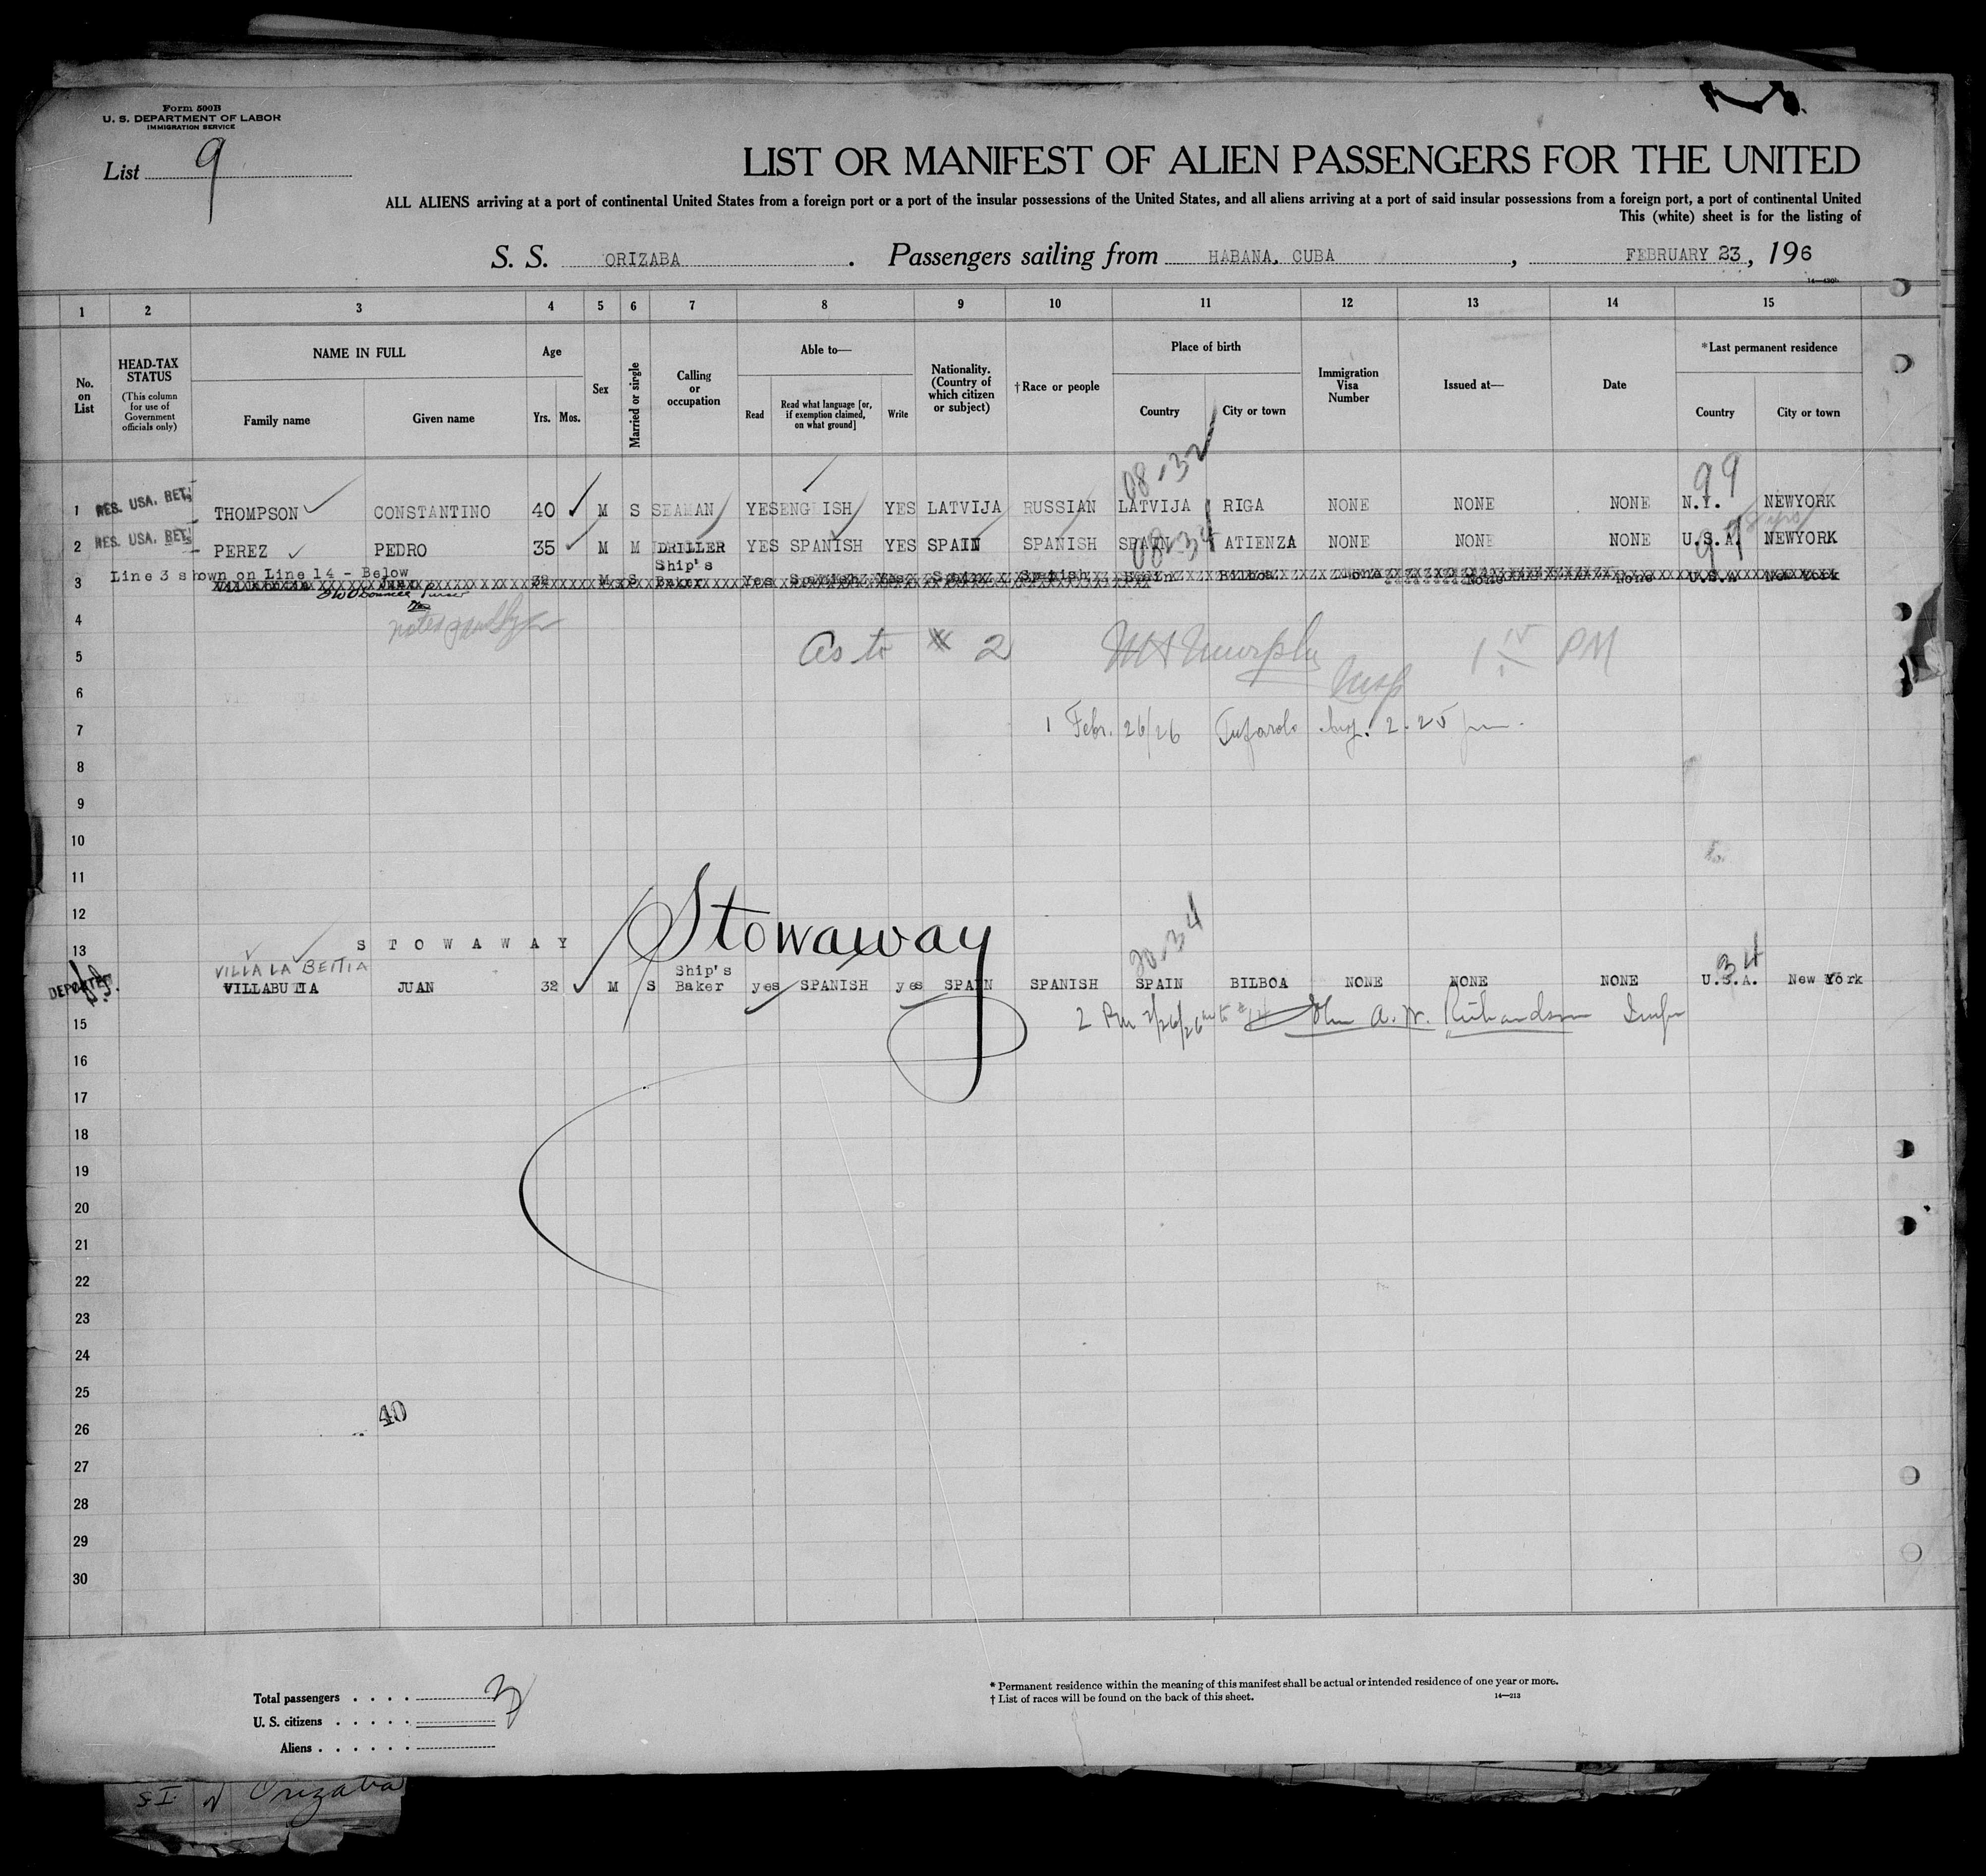 Form 500B
U. S. DEPARTMENT OF LABOR
IMMIGRATION SERVICE
List 9
LIST OR MANIFEST OF ALIEN PASSENGERS FOR THE UNITED
ALL ALIENS arriving at a port of continental United States from a foreign port or a port of the insular possessions of the United States, and all aliens arriving at a port of said insular possessions from a foreign port, a port of continental United
This (white) sheet is for the listing of
S. S. ORIZABA. Passengers sailing from HABANA, CUBA, FEBRUARY 23, 196
14—430b
1 2 3 4 5 6 7 8 9 10 11 12 13 14 15
No. on List
HEAD-TAX STATUS
(This column for use of Government officials only)
NAME IN FULL
Family name
Given name
Age
Yrs. Mos.
Sex
Married or single
Calling or occupation
Able to—
Read
Read what language [or, if exemption claimed, on what ground]
Write
Nationality. (Country of which citizen or subject)
†Race or people
Place of birth
Country
City or town
Immigration Visa Number
Issued at—
Date
*Last permanent residence
Country
City or town
08-32
99
1 RES. USA. RET'S THOMPSON CONSTANTINO 40 M S SEAMAN YES ENGLISH YES LATVIJA RUSSIAN LATVIJA RIGA NONE NONE NONE N.Y. NEWYORK
2 RES. USA. RET'S PEREZ PEDRO 35 M M DRILLER YES SPANISH YES SPAIN SPANISH SPAIN ATIENZA NONE NONE NONE U.S.A. NEWYORK
08-34
99
Line 3 shown on Line 14 - Below
3 Juan 32 M S Ship's Baker Yes Spanish Yes Spain Spanish Spain Bilboa None None None U.S.A New York
4
5 As to # 2 1 15 PM
6 Insp
7 1 Febr. 26/26 2.25 pm.
8
9
10
11
12
Stowaway
13 STOWAWAY
20-34
34
VILLA LA BEITIA
DEPORTED VILLABUTIA JUAN 32 M S Ship's Baker yes SPANISH yes SPAIN SPANISH SPAIN BILBOA NONE NONE NONE U.S.A. New York
15 2 PM 2/26/26 as to #14 John A. W. Richardson Insp
16
17
18
19
20
21
22
23
24
25
40
26
27
28
29
30
Total passengers . . . . 3
U. S. citizens . . . . .
Aliens . . . . . .
* Permanent residence within the meaning of this manifest shall be actual or intended residence of one year or more.
† List of races will be found on the back of this sheet.
14—213
S.I. of Orizaba